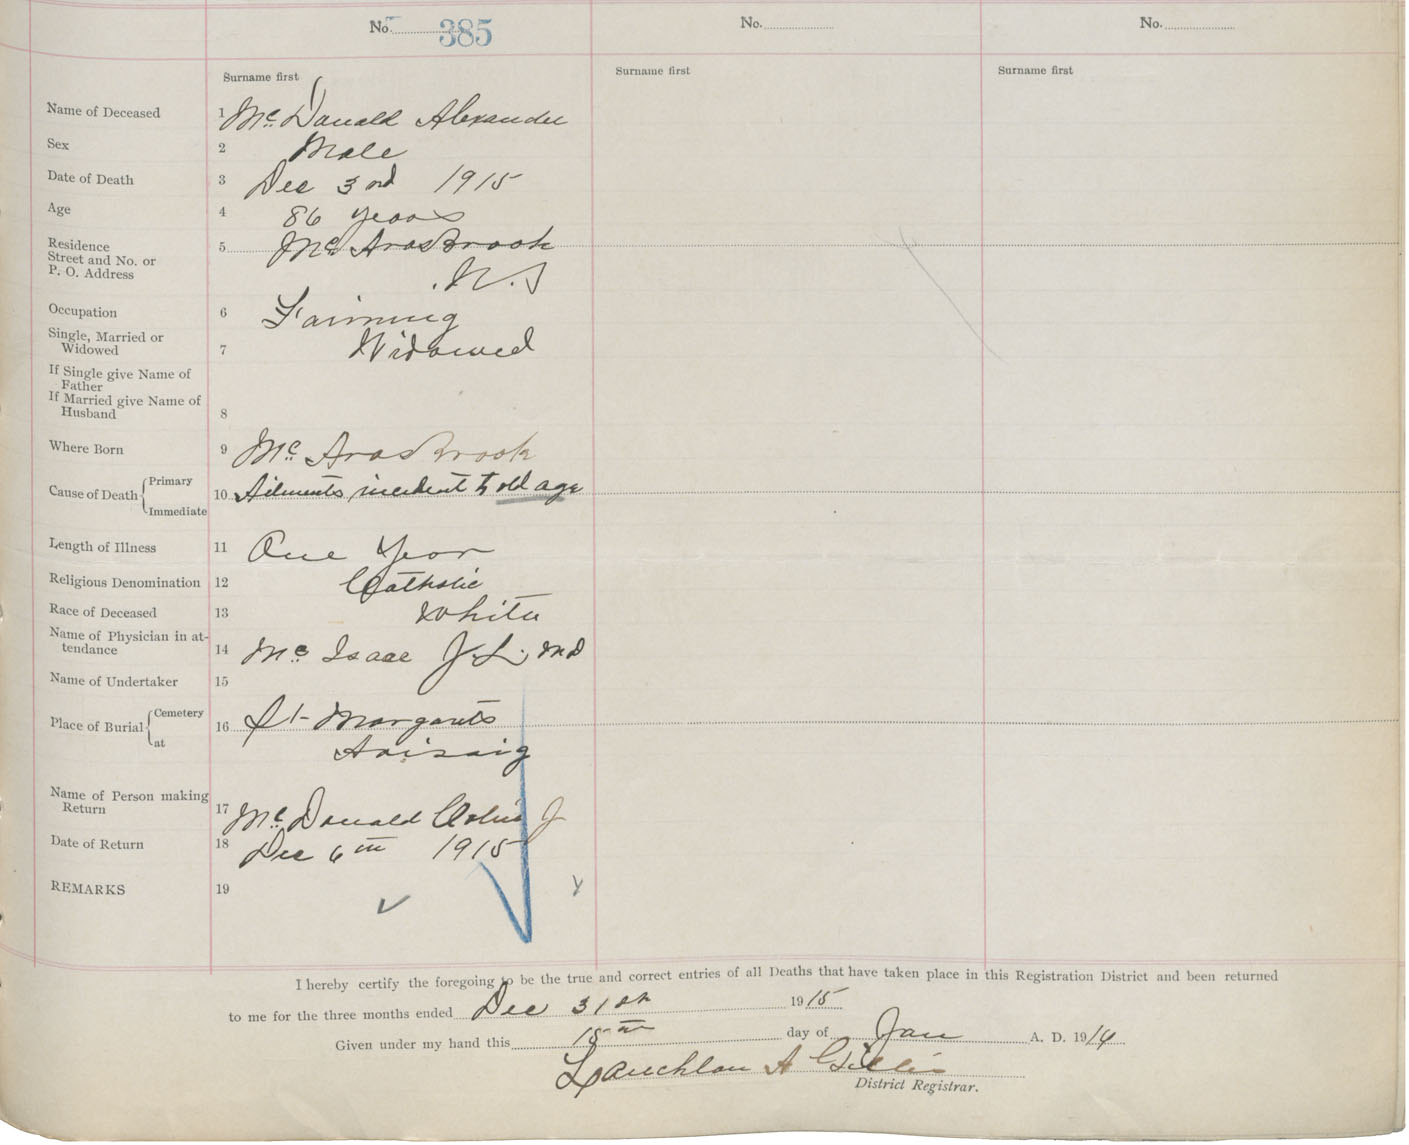 No. 385 No. No.
Surname first Surname first Surname first
Name of Deceased 1 Mc Donald Alexander
Sex 2 Male
Date of Death 3 Dec 3rd 1915
Age 4 86 years
Residence
Street and No. or 5 Mc Aras Brook
P. O. Address N. S
Occupation 6 Farming
Single, Married or
Widowed 7 Widowed
If Single give Name of
Father
If Married give Name of
Husband 8
Where Born 9 Mc Aras Brook
Cause of Death Primary 10 Ailments incident to old age
Immediate
Length of Illness 11 One Year
Religious Denomination 12 Catholic
Race of Deceased 13 White
Name of Physician in at-
tendance 14 Mc Isaac J. L. M D
Name of Undertaker 15
Place of Burial Cemetery 16 St Margarets
at Arisaig
Name of Person making
Return 17 Mc Donald Colin J
Date of Return 18 Dec 6th 1915
REMARKS 19
I hereby certify the foregoing to be the true and correct entries of all Deaths that have taken place in this Registration District and been returned
to me for the three months ended Dec 31st 1915
Given under my hand this 15th day of Jan A. D. 1916
Lauchlan A Gillis
District Registrar.